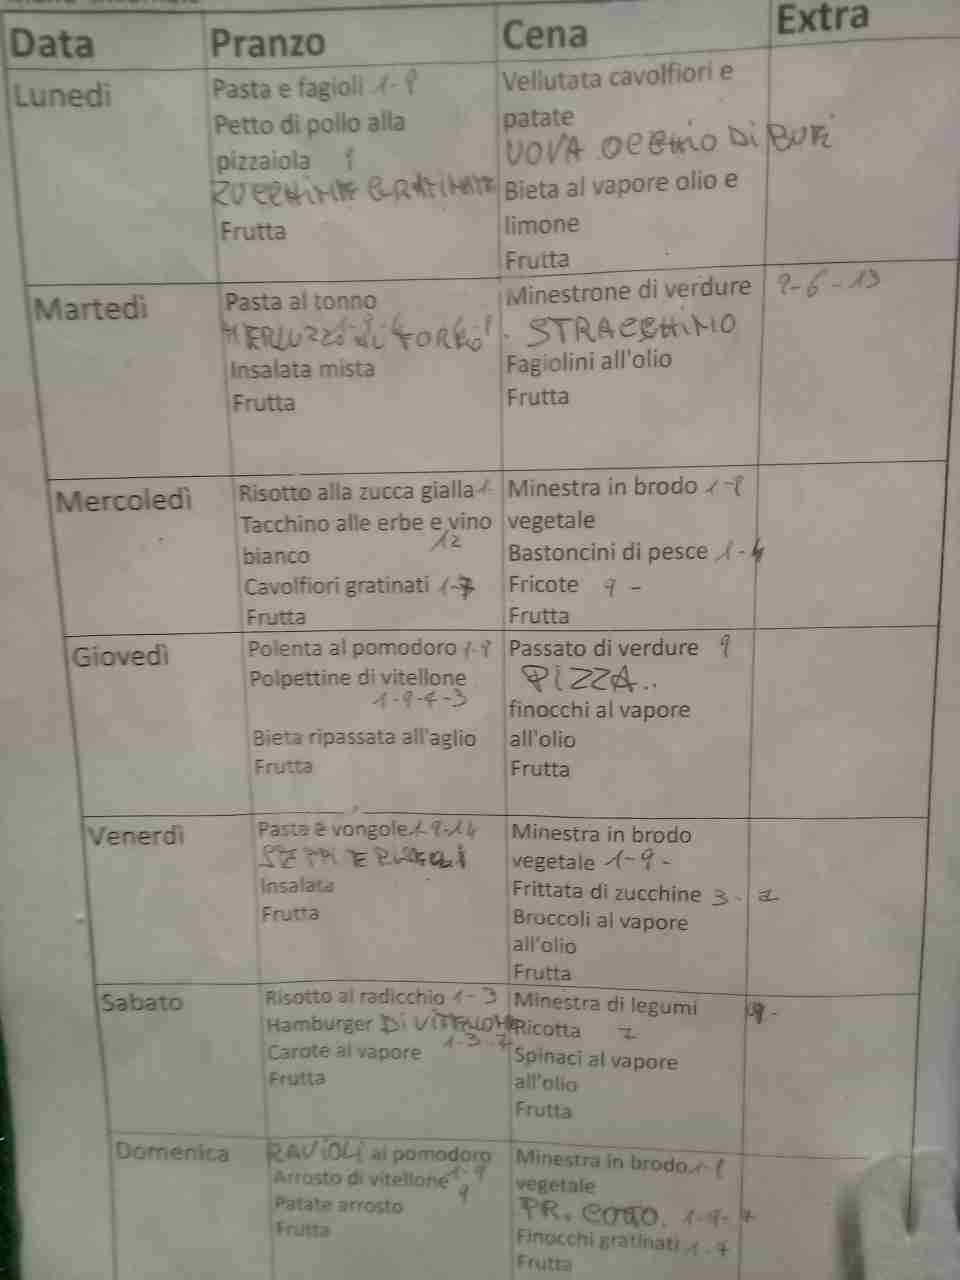 Data Pranzo Cena Extra
Lunedì
Pasta e fagioli 1-9
Petto di pollo alla
pizzaiola 9
ZUCCHINE GRATINATE
Frutta
Vellutata cavolfiori e
patate
UOVA OCCHIO DI BUE
Bieta al vapore olio e
limone
Frutta
Martedì
Pasta al tonno
MERLUZZO al FORNO
Insalata mista
Frutta
Minestrone di verdure
STRACCHINO
Fagiolini all'olio
Frutta
9-6-13
Mercoledì
Risotto alla zucca gialla 1-
Tacchino alle erbe e vino
bianco 12
Cavolfiori gratinati 1-7
Frutta
Minestra in brodo 1-9
vegetale
Bastoncini di pesce 1-4
Fricote 9 -
Frutta
Giovedì
Polenta al pomodoro 1-9
Polpettine di vitellone
1-9-7-3
Bieta ripassata all'aglio
Frutta
Passato di verdure 9
PIZZA..
finocchi al vapore
all'olio
Frutta
Venerdì
Pasta e vongole 1-9-14
Insalata
Frutta
Minestra in brodo
vegetale 1-9-
Frittata di zucchine 3-7
Broccoli al vapore
all'olio
Frutta
Sabato
Risotto al radicchio 1-3
Hamburger DI VITELLONE
1-3-7
Carote al vapore
Frutta
Minestra di legumi 9-
Ricotta 7
Spinaci al vapore
all'olio
Frutta
Domenica
RAVIOLI al pomodoro
1-9
Arrosto di vitellone 9
Patate arrosto
Frutta
Minestra in brodo 1-9
vegetale
PR. COTTO. 1-9-7
Finocchi gratinati 1-7
Frutta